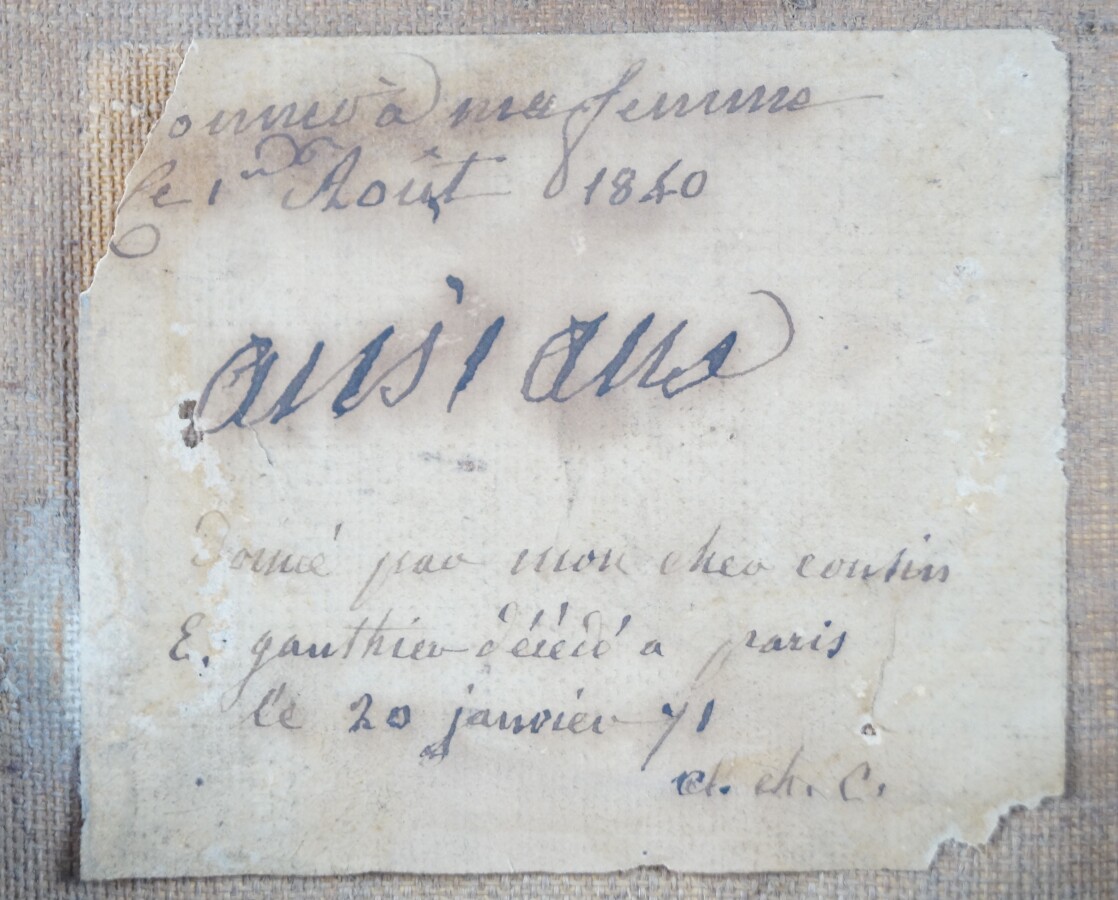 onner à ma femme
le 1er Août 1840
Donné par mon cher cousin
E. gauthier décédé a paris
le 20 janvier 71
ch. C.